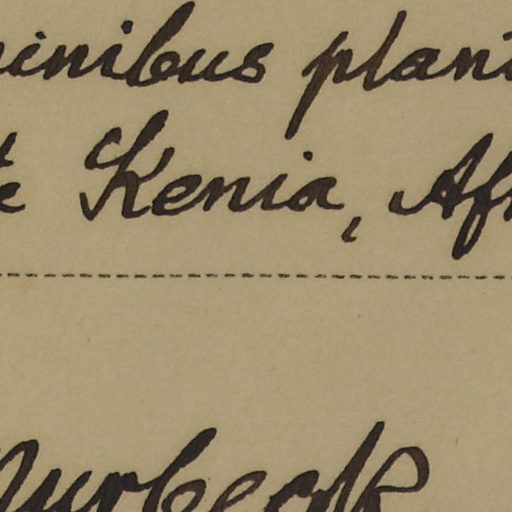 inibus plant
te Kenia, Afr
Murbeck